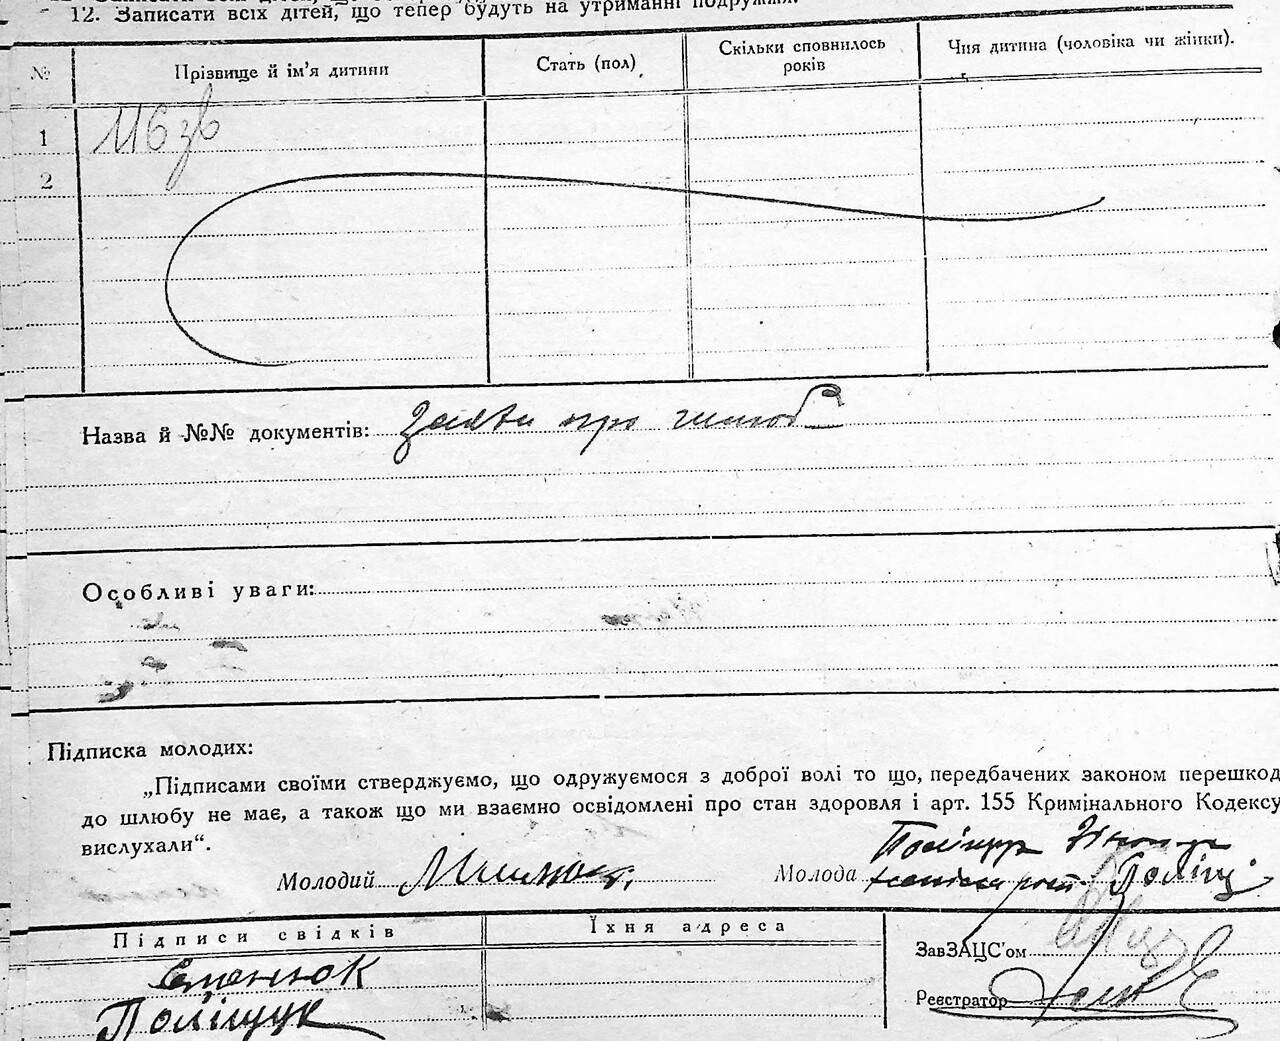 12. Записати всіх дітей, що тепер будуть на утриманні подружжя.
№ Прізвище й ім'я дитини Стать (пол) Скільки сповнилось років Чия дитина (чоловіка чи жінки).
1 116 зв
2
Назва й №№ документів: Заяви про шлюб
Особливі уваги:
Підписка молодих:
„Підписами своїми стверджуємо, що одружуємося з доброї волі то що, передбачених законом перешкод
до шлюбу не має, а також що ми взаємно освідомлені про стан здоровля і арт. 155 Кримінального Кодексу
вислухали“.
Молодий
Молода Поліщук
Підписи свідків Їхня адреса
ЗавЗАЦС'ом
Семенюк
Реєстратор
Поліщук